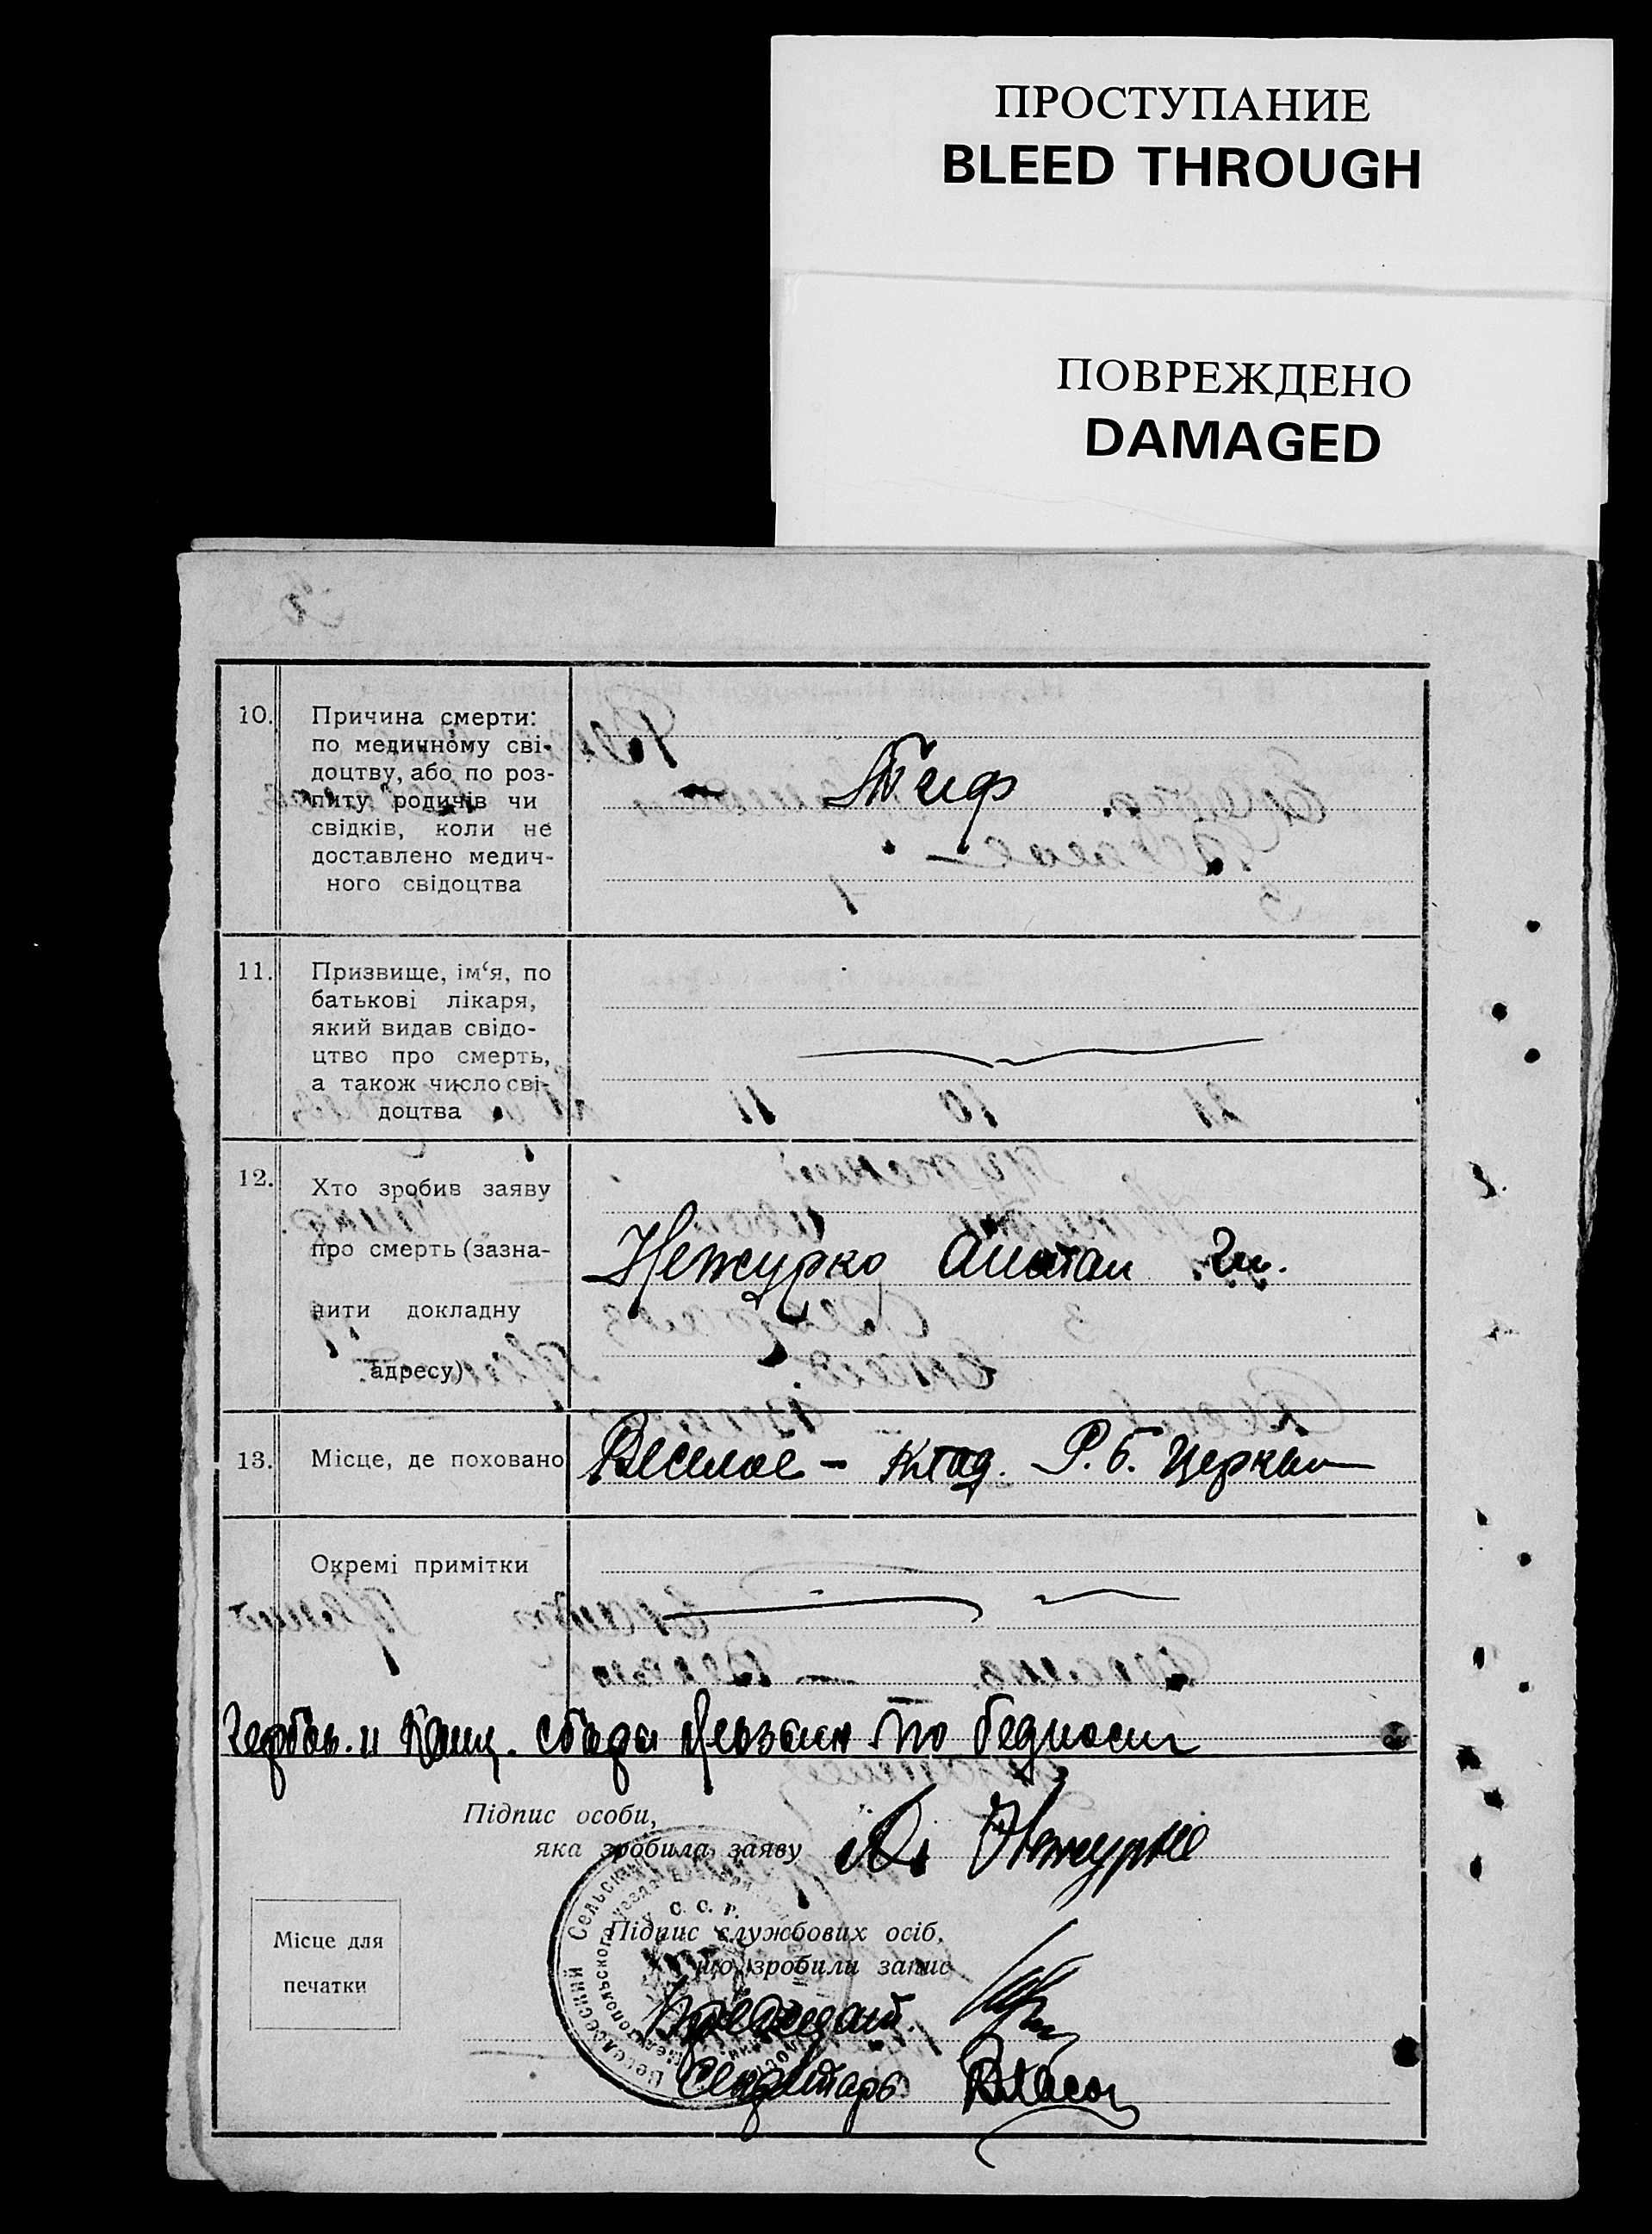 ПРОСТУПАНИЕ
BLEED THROUGH
ПОВРЕЖДЕНО
DAMAGED
10. Причина смерти:
по медичному сві-
доцтву, або по роз-
питу родичів чи
свідків, коли не
доставлено медич-
ного свідоцтва
Тиф
11. Призвище, ім‘я, по
батькові лікаря,
який видав свідо-
цтво про смерть,
а також число сві-
доцтва
12. Хто зробив заяву
про смерть (зазна-
чити докладну
адресу)
Нежурко
13. Місце, де поховано
Веселое – клад. Р. б. Церкви
Окремі примітки
Гербов. и Канц. сборы по бедности
Підпис особи,
яка зробила заяву
Нежурко
С. С. Р.
Підпис службових осіб,
що зробили запис
Місце для
печатки
Секретарь